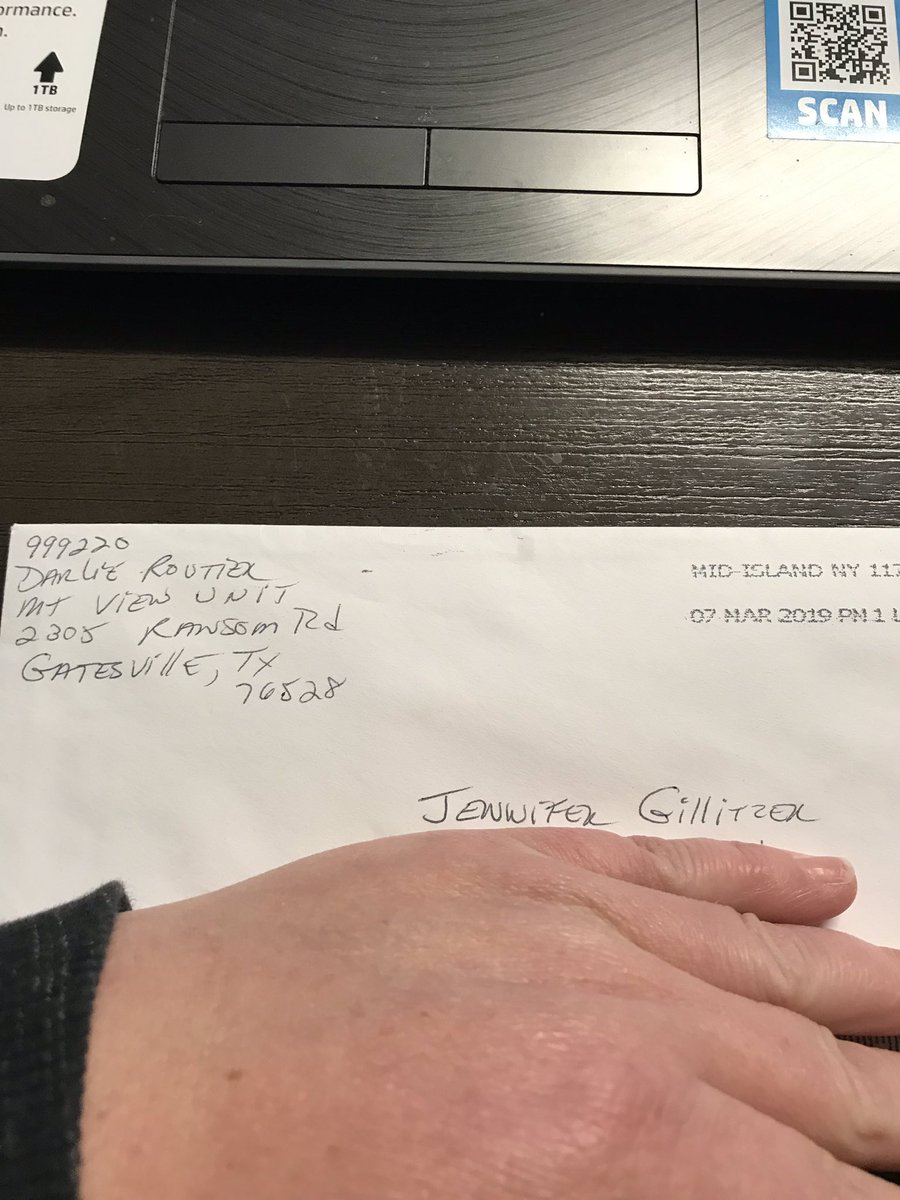 ormance.
1TB
Up to 1TB storage
SCAN
999220
DARLIE ROUTIER
MT VIEW UNIT
2305 RANSOM Rd
GATESVillE, TX
76528
MID-ISLAND NY 117
07 MAR 2019 PM 1 L
JENNIFER GilliTZER